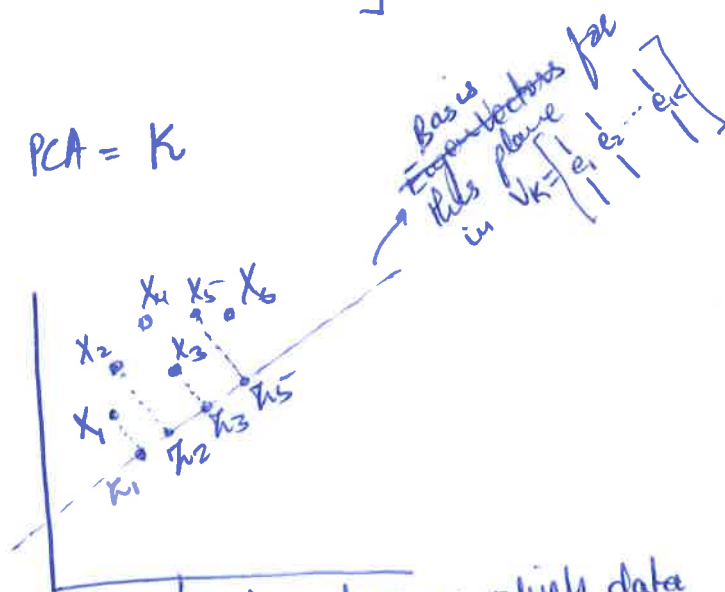 PCA = K
Basis
Eigenvectors for
this plane
in V_K = [e_1 e_2 ... e_K]
X_4 X_5 X_6
X_2 X_3
X_1
z_5
z_3
z_2
z_1
which data